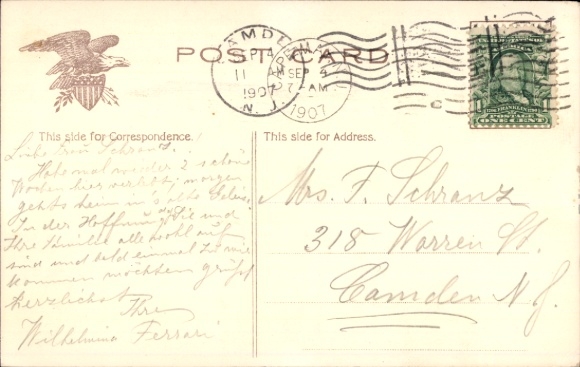 CAMDEN
SEP 4
11 AM
1907
N. J.
CAPE MAY
SEP 4
7 - AM
1907
POST CARD
UNITED STATES OF AMERICA
FRANKLIN
POSTAGE
ONE CENT
This side for Correspondence.
Liebe Frau Schranz!
Habe mal wieder 2 schöne
Wochen hier verlebt, morgen
gehts heim in's alte Geleise.
In der Hoffnung daß Sie und
Ihre Familie alle wohl auf
sind und bald einmal zu mir
kommen möchten grüßt
herzlichst
Ihre
Wilhelmina Ferrari
This side for Address.
Mrs. F. Schranz
318 Warren St.
Camden N. J.